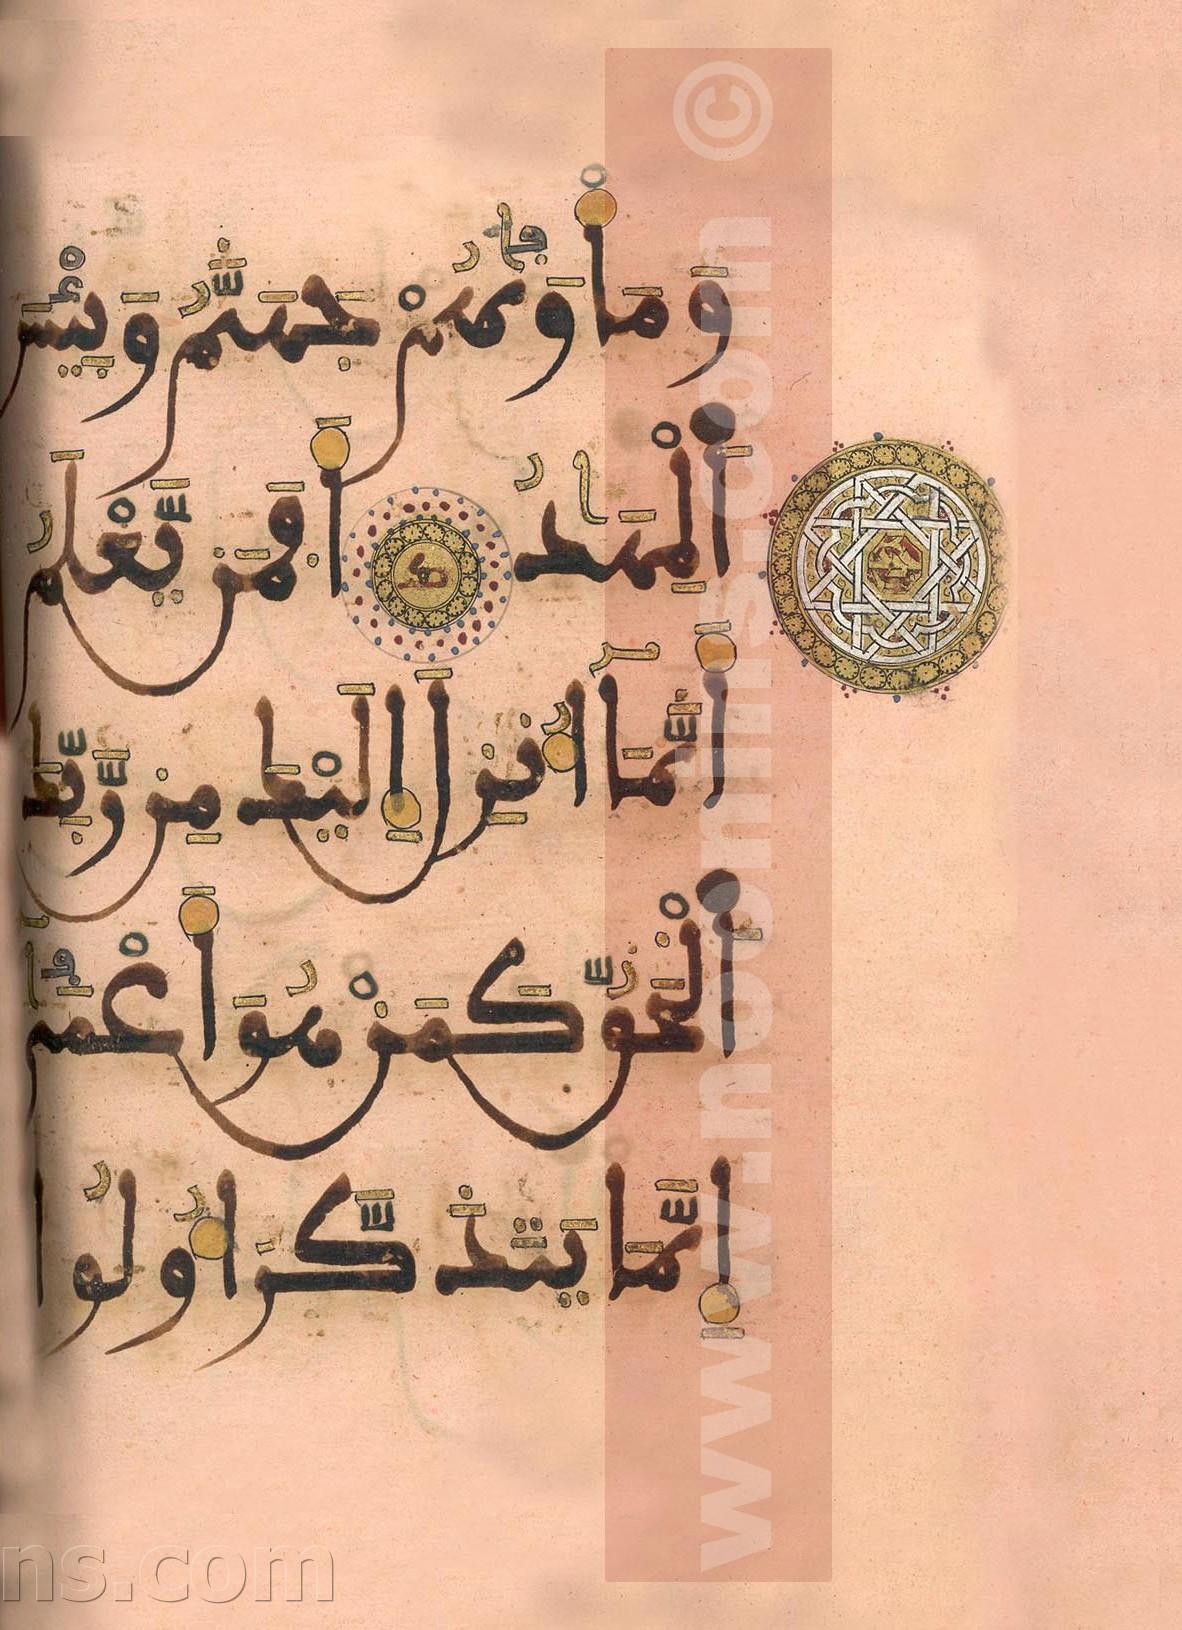 وَمَأْوَىٰهُمْ جَهَنَّمُ وَبِئْسَ
اَ۬لْمِهَادُ أَفَمَنْ يَّعْلَمُ
أَنَّمَا أُنزِلَ إِلَيْكَ مِن رَّبِّكَ
اَ۬لْحَقُّ كَمَنْ هُوَ أَعْمَىٰ
إِنَّمَا يَتَذَكَّرُ أُوْلُواْ
www.noonlins.com ©
ns.com